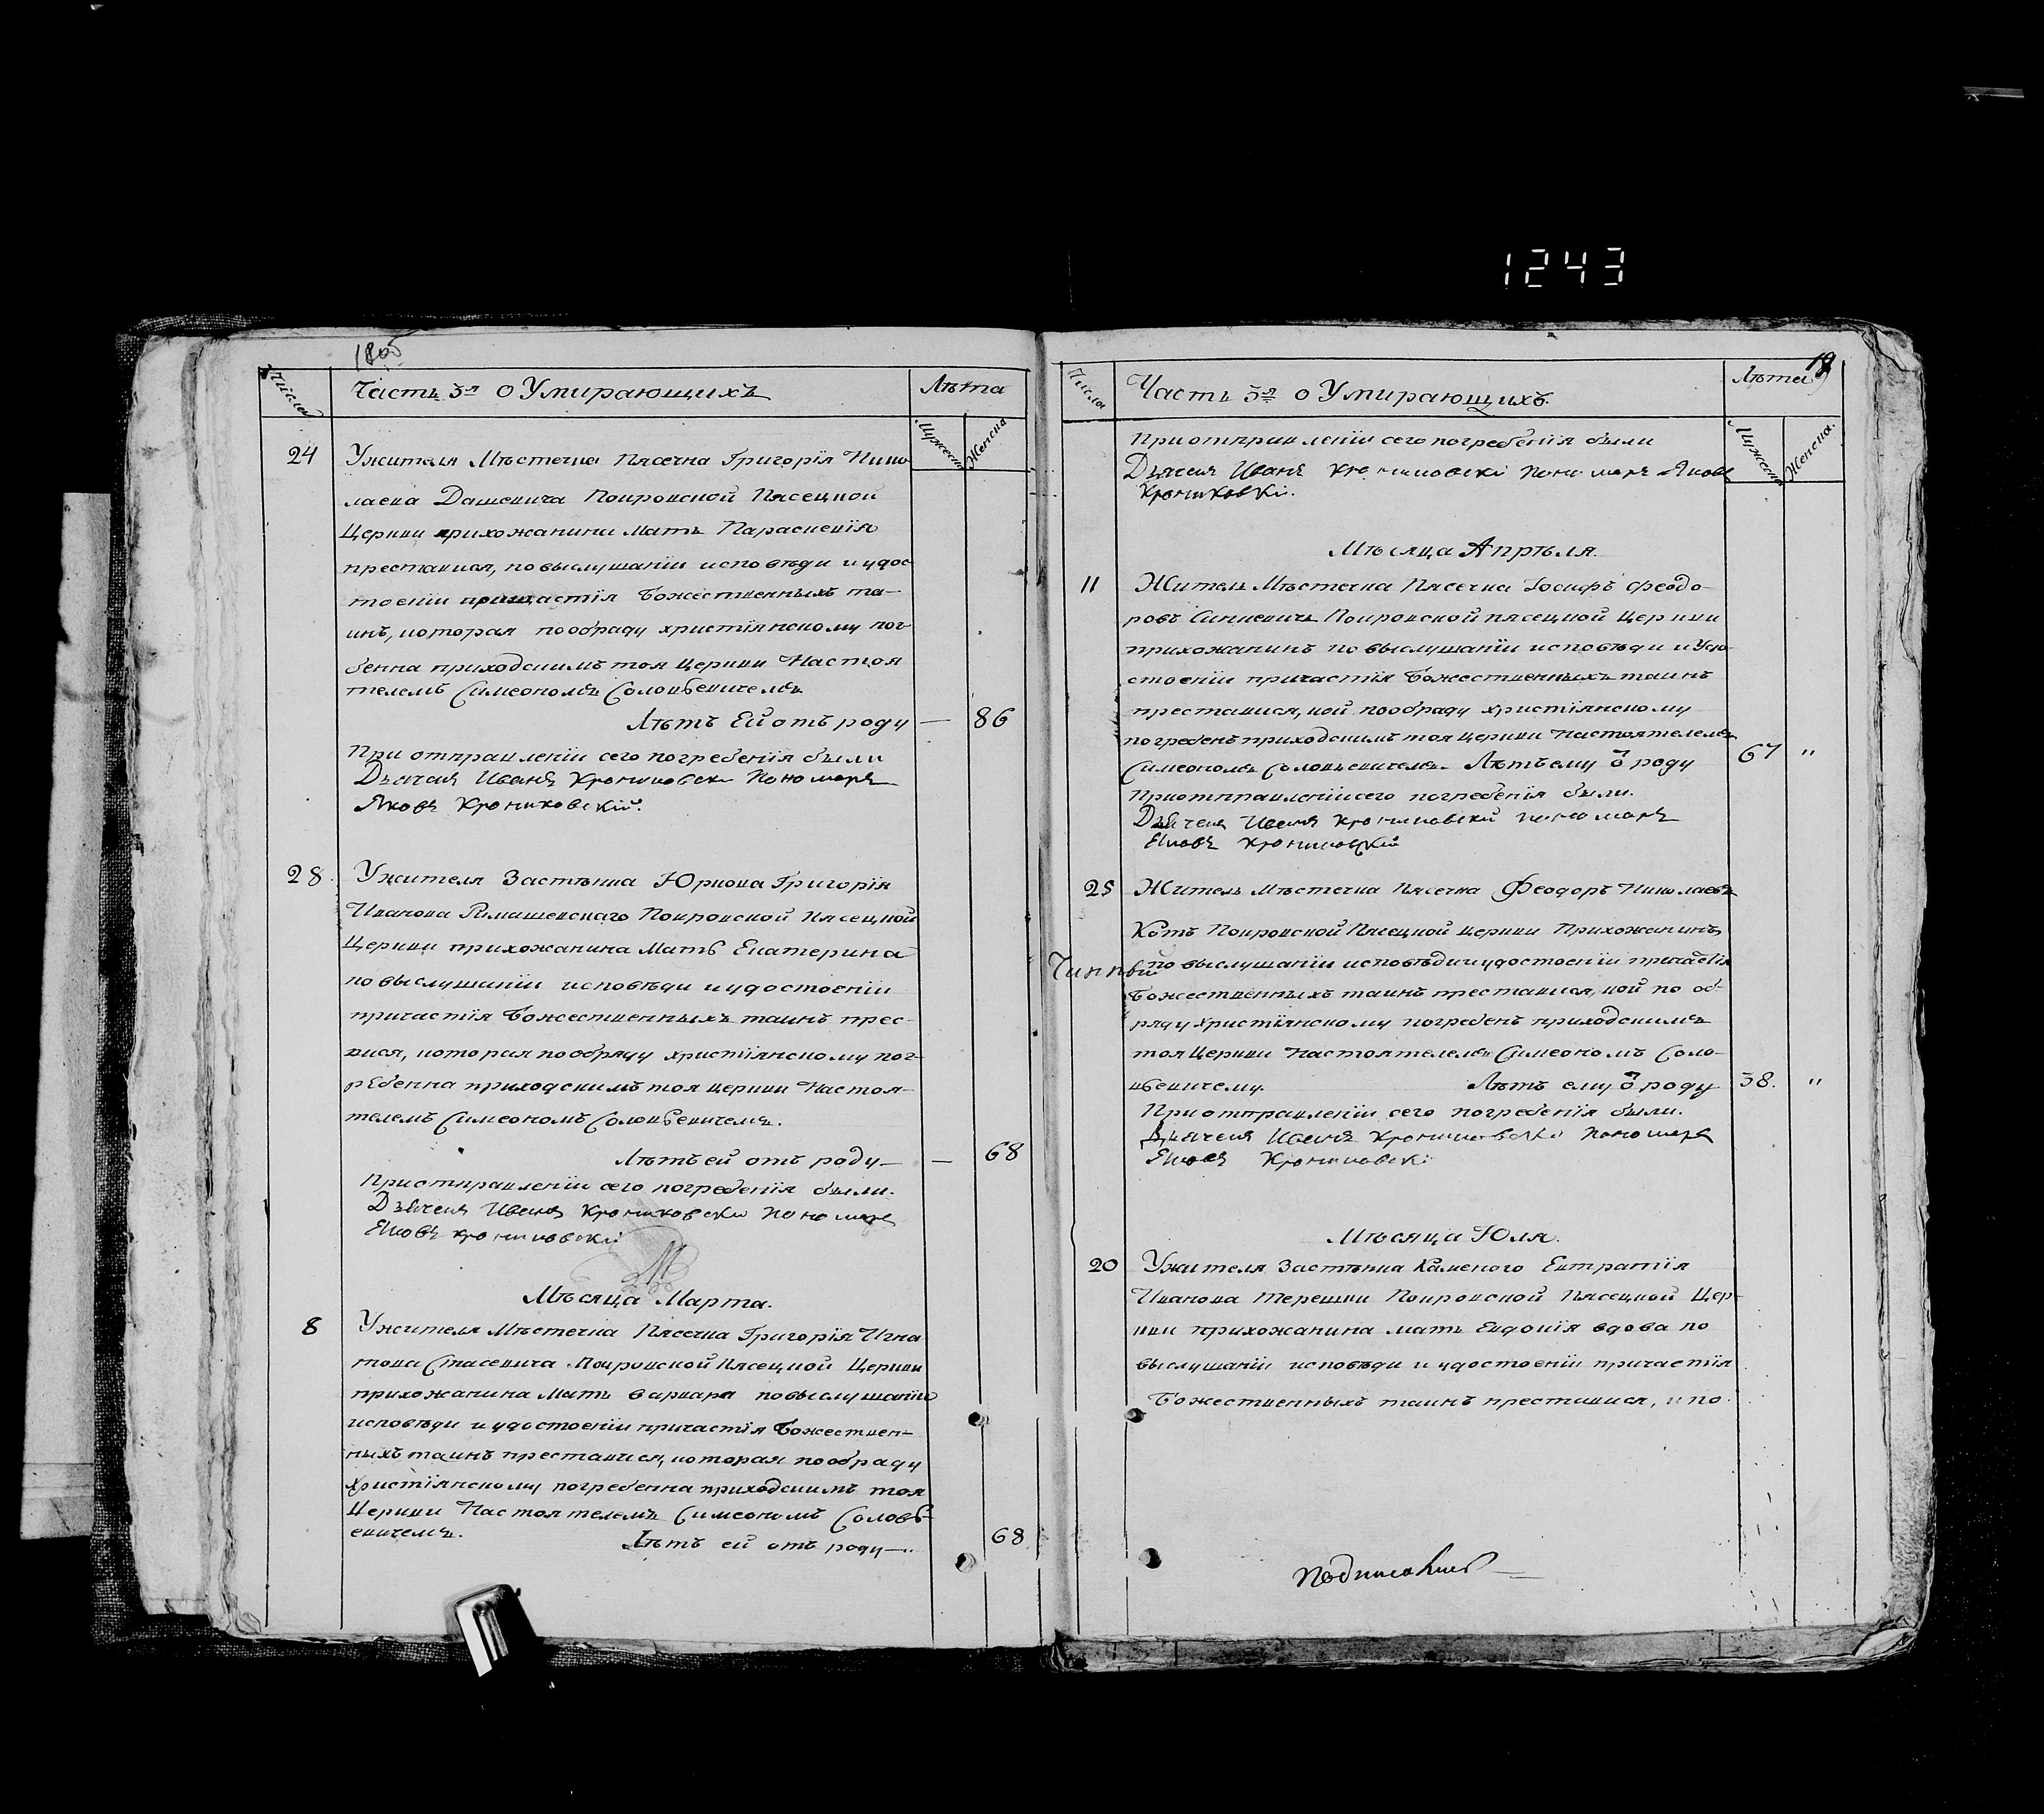 1243
1805
Числа
Часть 3я о Умирающихъ
Лѣта
Мужеска
Женска
24
Ужителя Мѣстечка Пясечна Григорія Нико
лаева Дашкевича Покровской Пясецкой
Церкви прихожанина Мать Параскевія
преставися, по выслушаніи исповѣди и удос
тоеніи причастія Божественныхъ та-
инъ, которая пообраду христіянскому пог
бенна приходскимъ тоя церкви Настоя
телемъ Симеономъ Соловьевичемъ
Лѣтъ Ей отъ роду — 86
При отправленіи сего погребенія были
Дьячекъ Иванъ Крониковски Пономаръ
Яковъ Крониковскій.
28
Ужителя Застѣнка Юркова Григорія
Иванова Римашевскаго Покровской Пясецкой
Церкви прихожанина Мать Екатерина
по выслушаніи исповѣди и удостоеніи
причастія Божественныхъ таинъ прес-
вися, которая пообряду христіянскому пог-
ребенна приходскимъ тоя церкви Настоя-
телемъ Симеономъ Соловьевичемъ.
Лѣтъ ей отъ роду — — 68
При отправленіи сего погребенія были.
Дьячекъ Иванъ Крониковски Пономаръ
Яковъ Крониковскій
Мѣсяца Марта.
8
Ужителя Мѣстечка Пясечна Григорія Игна
това Стасевича Покровской Пясецкой Церкви
прихожанина Мать Варвара повыслушаніи
исповѣди и удостоеніи причастія Божествен-
ныхъ таинъ преставися, которая пообраду
христіянскому погребенна приходскимъ тоя
Церкви Настоятелемъ Симеономъ Соловь-
евичемъ.
Лѣтъ ей отъ роду — 68
Числа
Часть 3я о Умирающихъ.
Лѣта
Мужеска
Женска.
При отправленіи сего погребенія были
Дьячекъ Иванъ Крониковскі Пономаръ Яковъ
Крониковскі.
Мѣсяца Апрѣля.
11
Житель Мѣстечка Пясечна Іосифъ Феодо-
ровъ Синкевичъ Покровской пясецкой Церкви
прихожанинъ по выслушаніи исповѣди и Удо-
стоеніи причастія Божественныхъ таинъ
преставися, кой пообраду христіянскому
погребенъ приходскимъ тоя Церкви Настоятелемъ
Симеономъ Соловьевичемъ. Лѣтъ ему ѿ роду 67 "
При отправленіи сего погребенія были.
Дьячекъ Иванъ Крониковскій пономаръ
Яковъ Крониковскій
25
Житель Мѣстечка Пясечна Феодоръ Николаевъ
Котъ Покровской Пясецкой Церкви Прихожанинъ
по выслушаніи исповѣди и удостоеніи причастія
Божественныхъ таинъ преставися, кой по об-
ряду христіянскому погребенъ приходскимъ
тоя Церкви Настоятелемъ Симеономъ Соло-
вьевичему. Лѣтъ ему ѿ роду 38. "
При отправленіи сего погребенія были.
Дьячекъ Иванъ Крониковскі Пономаръ
Яковъ Крониковскі
Мѣсяца Юля.
20
Ужителя Застѣнка Каменого Евтратія
Иванова Терешки Покровской Пясецкой Цер-
кви прихожанина мать Евдокія вдова по
выслушаніи исповѣди и удостоеніи причастія
Божественныхъ таинъ преставися, и по